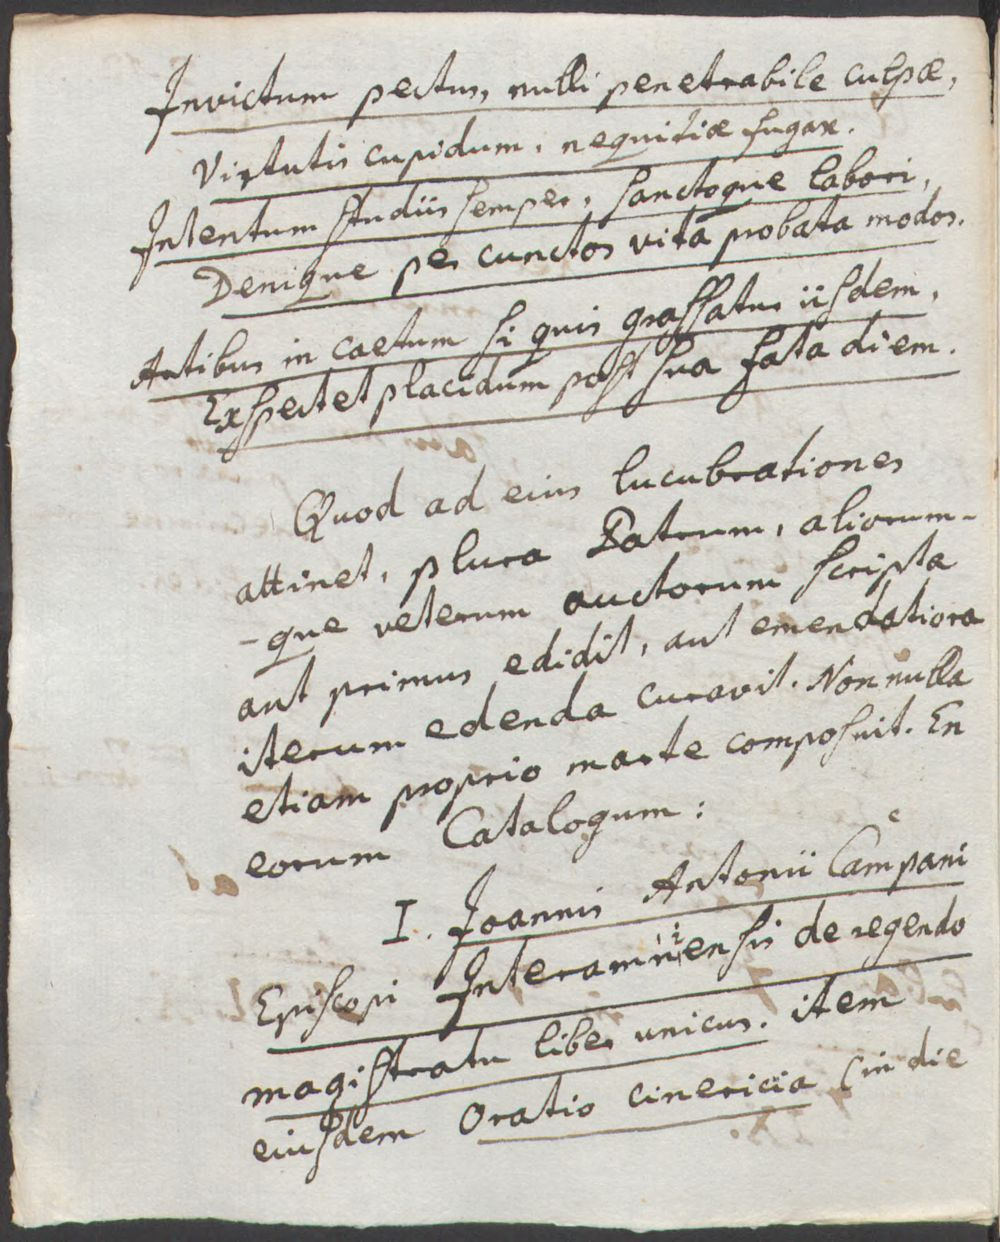 Invictum pectus, nulli penetrabile culpæ,
Virtutis cupidum, nequitiæ fugax.
Intentum studiis semper, sanctoque labori,
Denique per cunctos vita probata modos.
Artibus in caetum si quis grassatur iisdem,
Exspectet placidum post sua fata diem.
Quod ad eius lucubrationes
attinet, plura Patrum, aliorum-
-que veterum auctorum scripta
aut primus edidit, aut emendatiora
iterum edenda curavit. Non nulla
etiam proprio marte composuit. En
eorum Catalogum:
I. Joannis Antonii Campani
Episcopi Interamniensis de regendo
magistratu liber unicus. item
eiusdem Oratio cinericia (in die